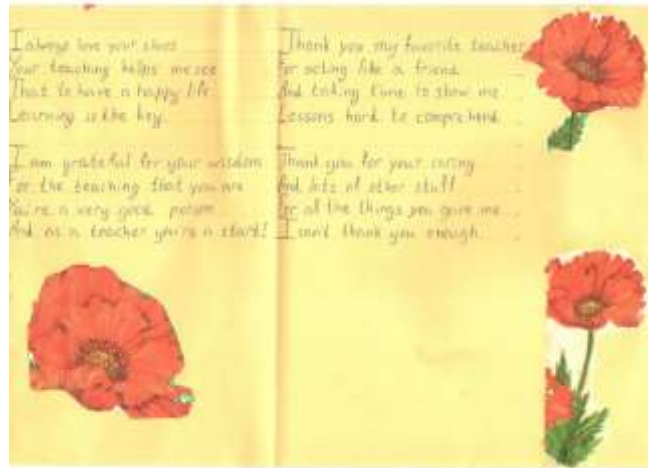 I always love your class
Your teaching helps me see
That to have a happy life
Learning is the key.
I am grateful for your wisdom
For the teaching that you are
You're a very good person
And as a teacher you're a start!
Thank you my favorite teacher
For acting like a friend
And taking time to show me
Lessons hard to comprehend
Thank you for your caring
And lots of other stuff
For all the things you gave me
I can't thank you enough.